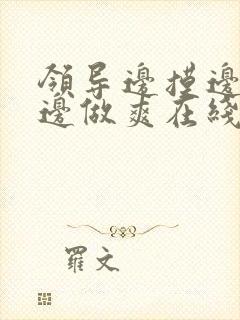 領导邊摸邊
邊做爽在綫
羅文